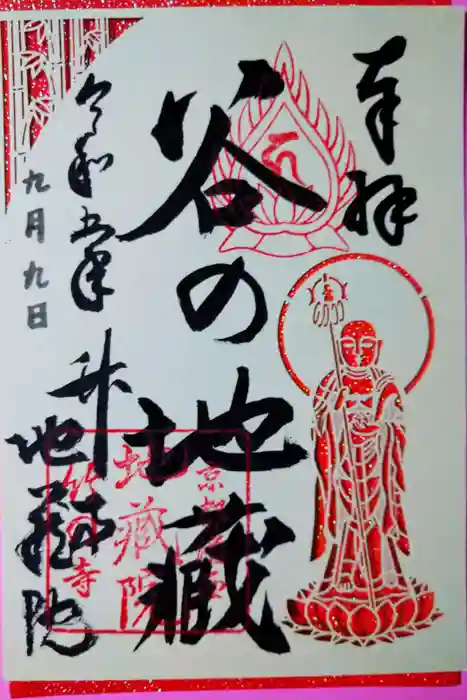 奉拝
谷の地藏
令和五年
九月九日
竹
地蔵院
京都
地藏院
竹の寺